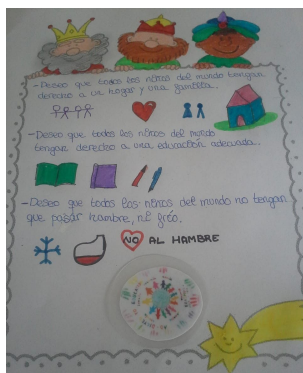 -Deseo que todos los niños del mundo tengan
derecho a un hogar y una familia..
-Deseo que todos los niños del mundo
tengan derecho a una educación adecuada..
-Deseo que todos los niños del mundo no tengan
que pasar hambre, ni frío.
NO AL HAMBRE